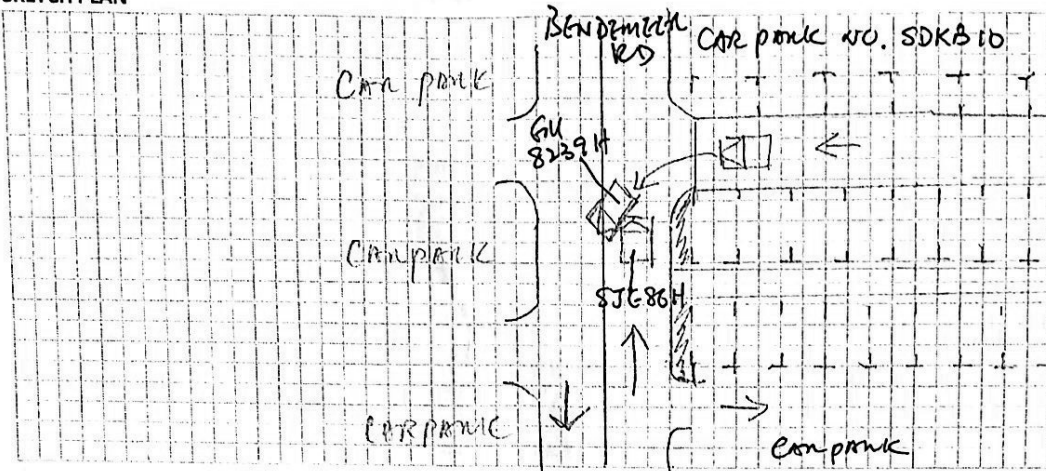 SKETCH PLAN
BENDEMEER
RD
CAR PARK NO. SDKB10
CAR PARK
GU
8239H
CAR PARK
SJE86H
CAR PARK
CAR PARK